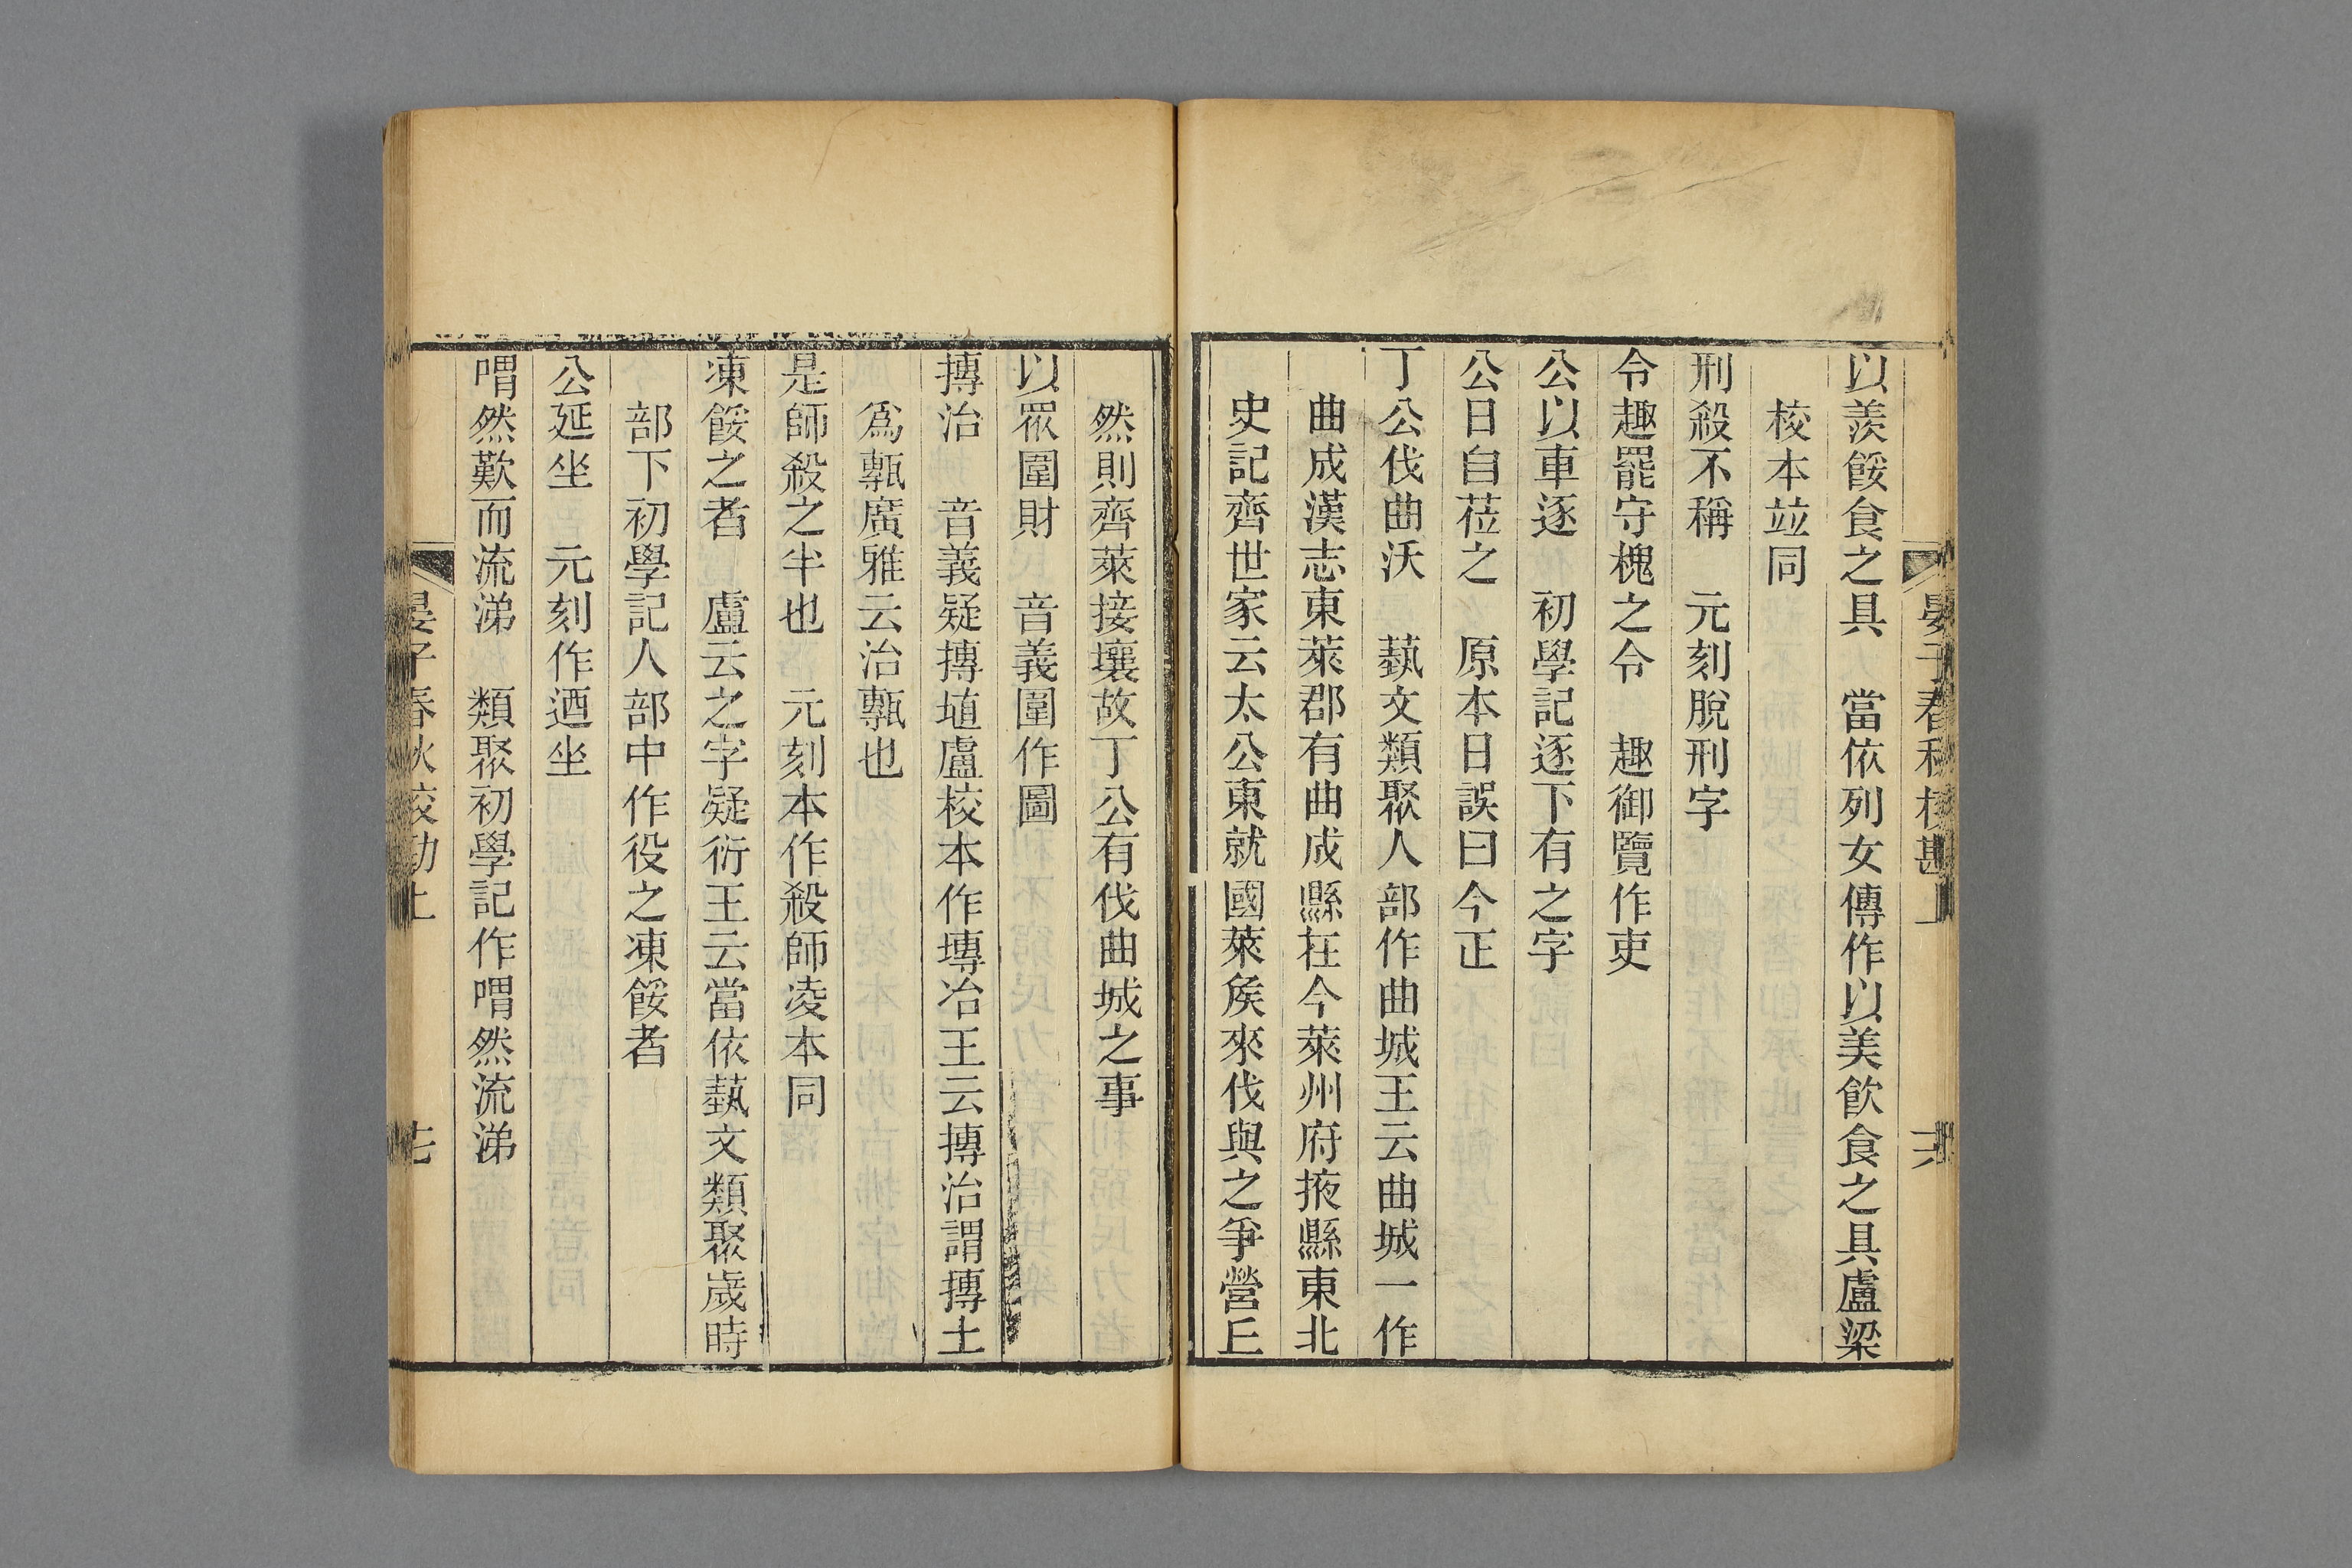 晏子春秋校勘上 十六
以羨餒食之具 當依列女傳作以美飲食之具盧梁
校本竝同
刑殺不稱 元刻脫刑字
令趣罷守槐之令 趣御覽作吏
公以車逐 初學記逐下有之字
公曰自莅之 原本日誤曰今正
丁公伐曲沃 蓺文類聚人部作曲城王云曲城一作
曲成漢志東萊郡有曲成縣在今萊州府掖縣東北
史記齊世家云太公東就國萊矦來伐與之爭營丘
然則齊萊接壤故丁公有伐曲城之事
以眾圍財 音義圍作圖
摶治 音義疑摶埴盧校本作塼冶王云摶治謂摶土
爲甎廣雅云治甎也
是師殺之半也 元刻本作殺師凌本同
凍餒之者 盧云之字疑衍王云當依蓺文類聚歲時
部下初學記人部中作役之凍餒者
公延坐 元刻作迺坐
喟然歎而流涕 類聚初學記作喟然流涕
晏子春秋校勘上 十七